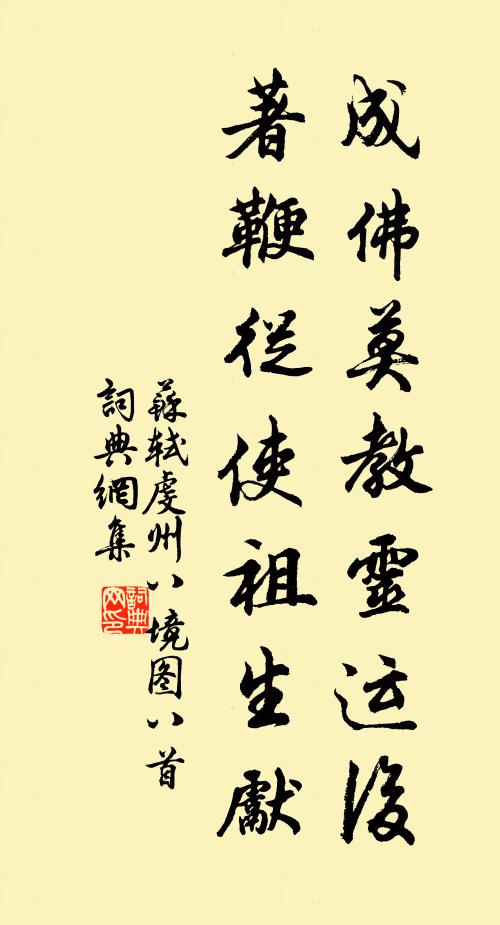 成佛莫教靈运後
著鞭從使祖生獻
蘇軾虔州八境图八首
詞典網集
詞典网印